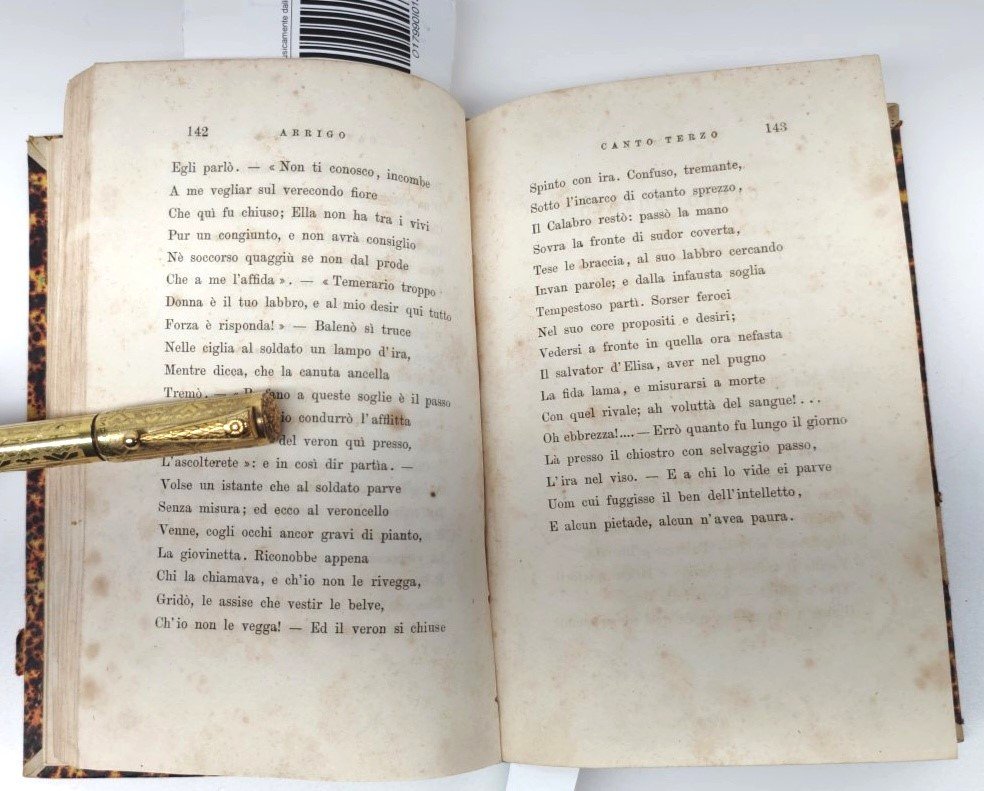 usicamente dall
142 ARRIGO
Egli parlò. — « Non ti conosco, incombe
A me vegliar sul verecondo fiore
Che quì fu chiuso; Ella non ha tra i vivi
Pur un congiunto, e non avrà consiglio
Nè soccorso quaggiù se non dal prode
Che a me l'affida ». — « Temerario troppo
Donna è il tuo labbro, e al mio desir qui tutto
Forza è risponda! » — Balenò sì truce
Nelle ciglia al soldato un lampo d'ira,
Mentre dicea, che la canuta ancella
Tremò. — a queste soglie è il passo
io condurrò l'afflitta
del veron quì presso,
L'ascolterete »: e in così dir partìa. —
Volse un istante che al soldato parve
Senza misura; ed ecco al veroncello
Venne, cogli occhi ancor gravi di pianto,
La giovinetta. Riconobbe appena
Chi la chiamava, e ch'io non le rivegga,
Gridò, le assise che vestir le belve,
Ch'io non le vegga! — Ed il veron si chiuse
CANTO TERZO 143
Spinto con ira. Confuso, tremante,
Sotto l'incarco di cotanto sprezzo,
Il Calabro restò: passò la mano
Sovra la fronte di sudor coverta,
Tese le braccia, al suo labbro cercando
Invan parole; e dalla infausta soglia
Tempestoso partì. Sorser feroci
Nel suo core propositi e desiri;
Vedersi a fronte in quella ora nefasta
Il salvator d'Elisa, aver nel pugno
La fida lama, e misurarsi a morte
Con quel rivale; ah voluttà del sangue!...
Oh ebbrezza!.... — Errò quanto fu lungo il giorno
Là presso il chiostro con selvaggio passo,
L'ira nel viso. — E a chi lo vide ei parve
Uom cui fuggisse il ben dell'intelletto,
E alcun pietade, alcun n'avea paura.